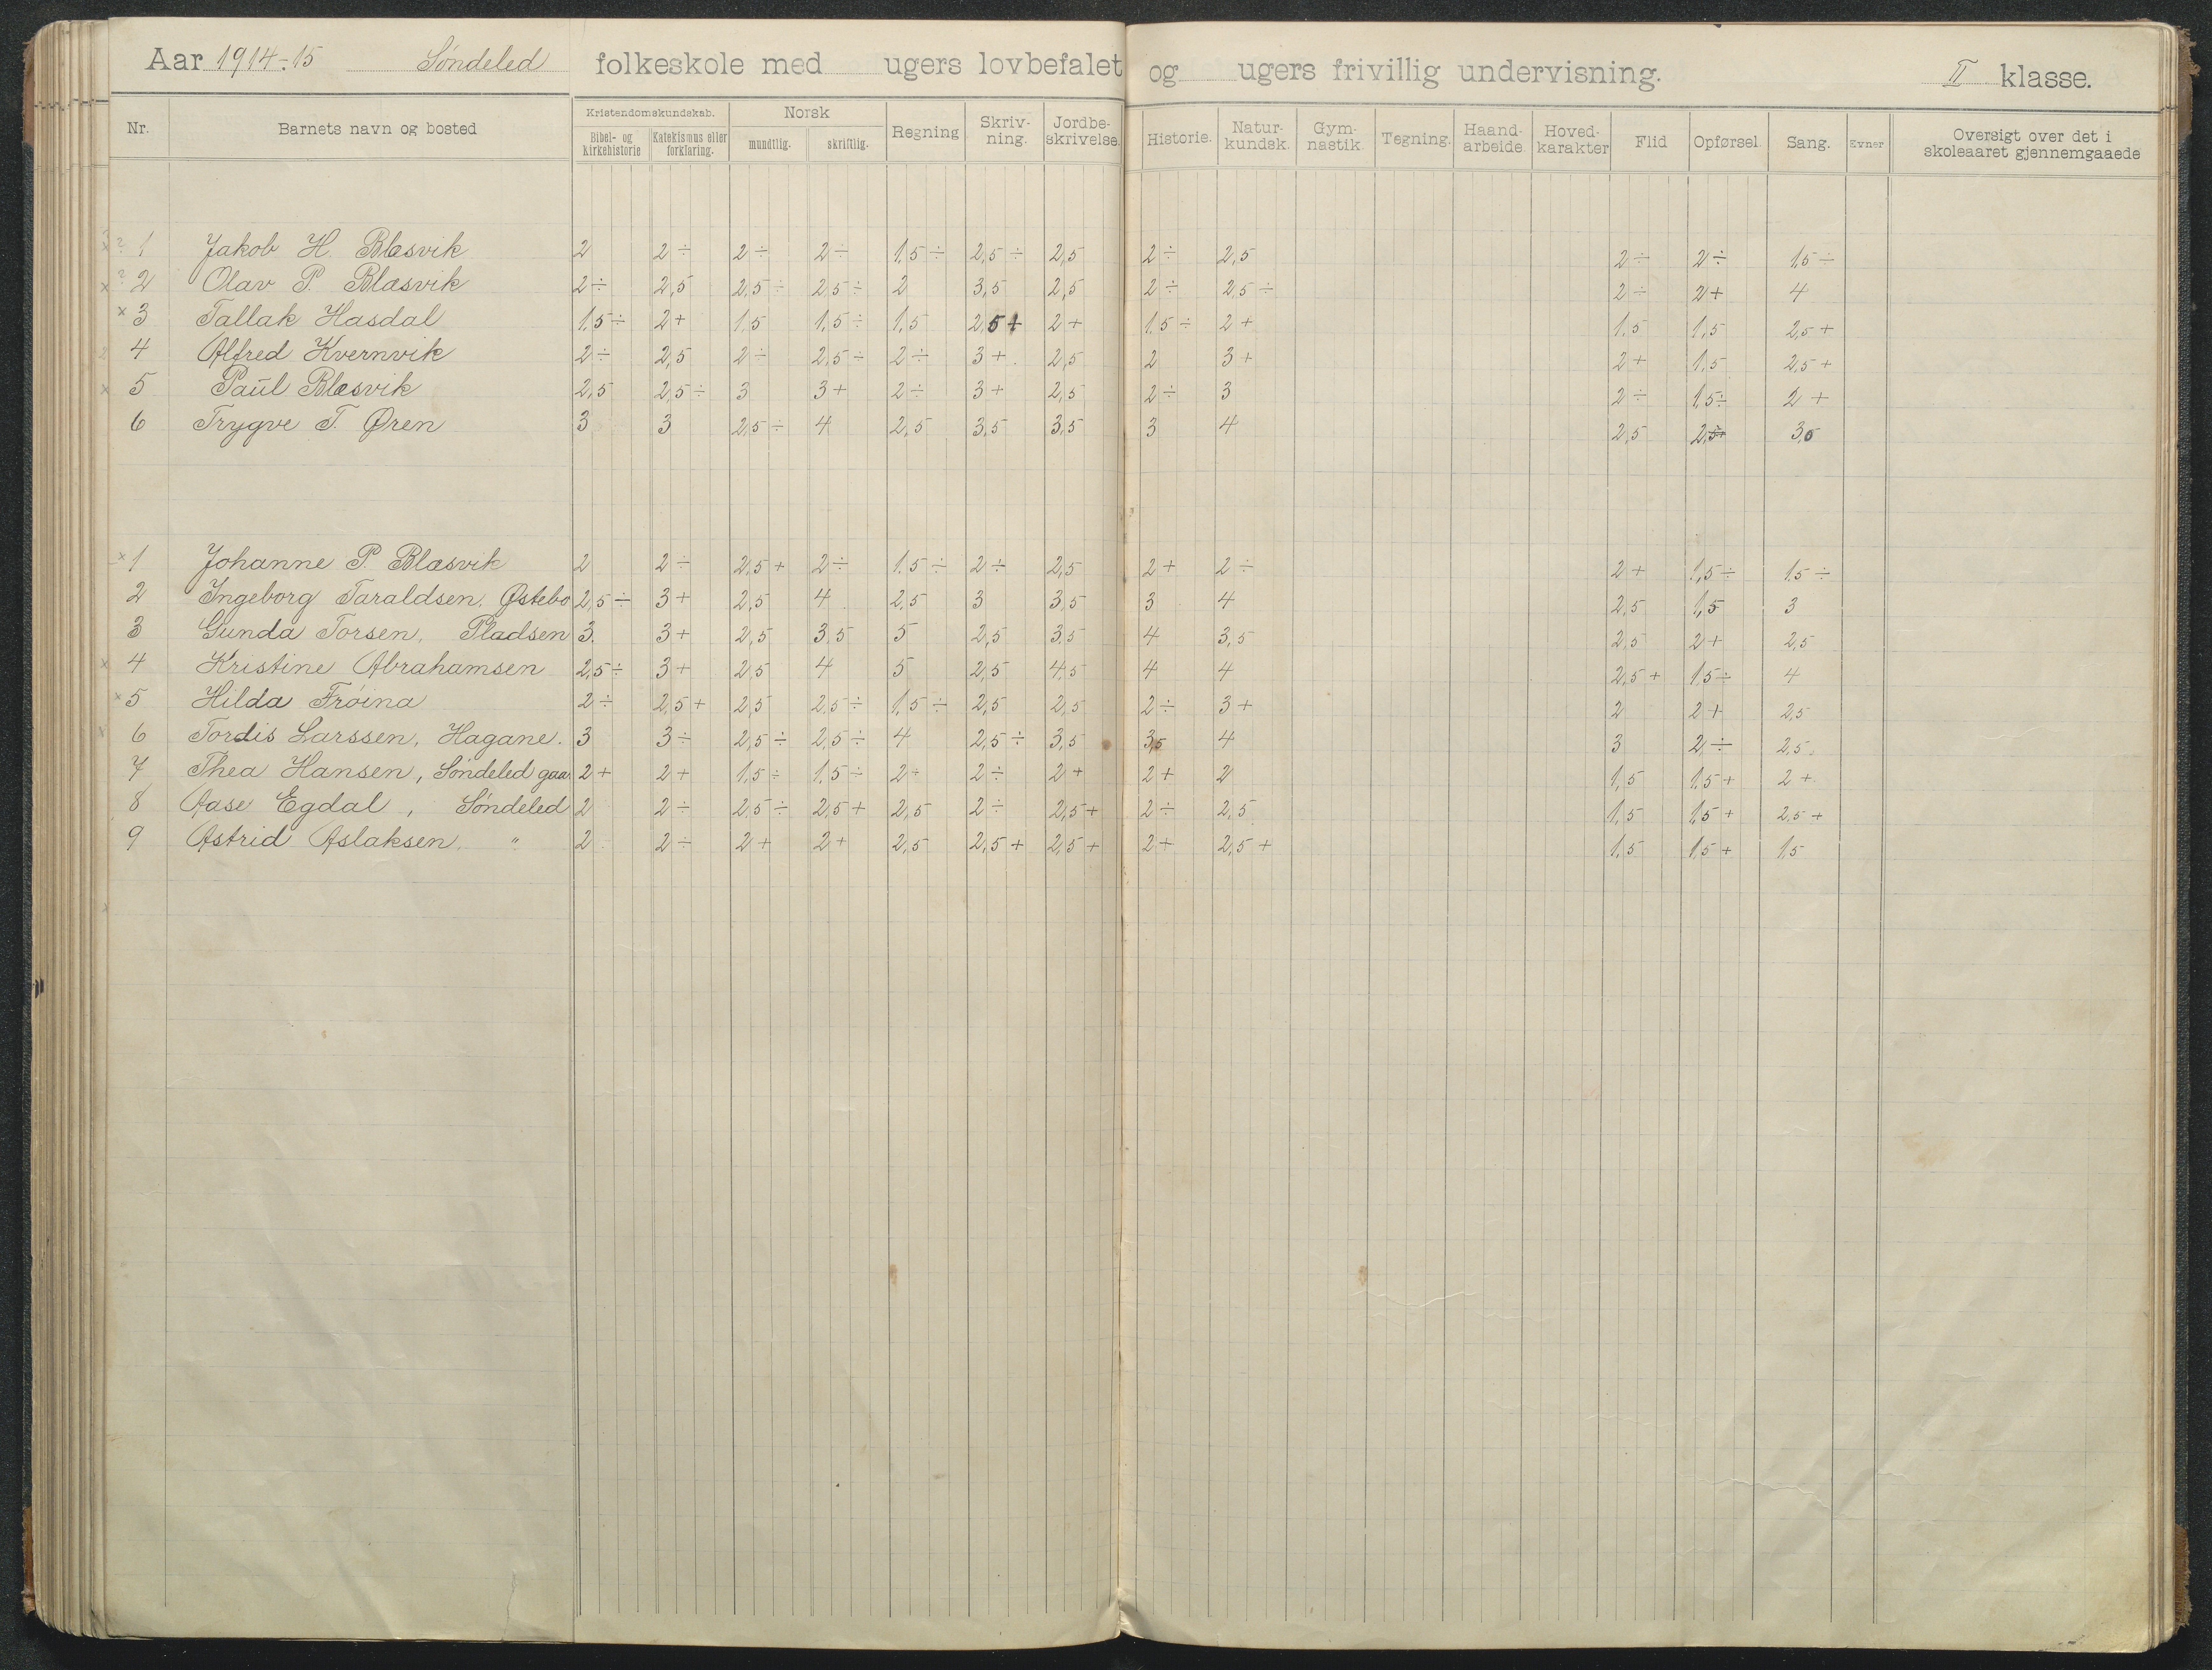 Aar 1914-15 Søndeled folkeskole med ugers lovbefalet og ugers frivillig undervisning. II klasse.
Nr. Barnets navn og bosted Kristendomskundskab. Bibel- og kirkehistorie Katekismus eller forklaring. Norsk mundtlig. skriftlig. Regning Skriv-ning. Jordbe-skrivelse. Historie. Natur-kundsk. Gym-nastik. Tegning. Haand-arbeide. Hoved-karakter Flid Opførsel. Sang. Evner Oversigt over det i skoleaaret gjennemgaaede
1 Jakob H. Blæsvik 2 2÷ 2÷ 2÷ 1,5÷ 2,5÷ 2,5 2÷ 2,5 2÷ 2÷ 1,5÷
2 Olav P. Blæsvik 2÷ 2,5 2,5÷ 2,5÷ 2 3,5 2,5 2÷ 2,5÷ 2÷ 2+ 4
3 Tallak Hasdal 1,5÷ 2+ 1,5 1,5÷ 1,5 2,5+ 2+ 1,5÷ 2+ 1,5 1,5 2,5+
4 Alfred Kvernvik 2÷ 2,5 2÷ 2,5÷ 2÷ 3+ 2,5 2 3+ 2+ 1,5 2,5+
5 Paul Blæsvik 2,5 2,5÷ 3 3+ 2÷ 3+ 2,5 2÷ 3 2÷ 1,5÷ 2+
6 Trygve T. Øren 3 3 2,5÷ 4 2,5 3,5 3,5 3 4 2,5 2,5 3,5
1 Johanne P. Blæsvik 2 2÷ 2,5+ 2÷ 1,5÷ 2÷ 2,5 2+ 2÷ 2+ 1,5÷ 1,5÷
2 Ingeborg Taraldsen, Østebø 2,5÷ 3+ 2,5 4 2,5 3 3,5 3 4 2,5 1,5 3
3 Gunda Torsen, Pladsen 3 3+ 2,5 3,5 5 2,5 3,5 4 3,5 2,5 2+ 2,5
4 Kristine Abrahamsen 2,5÷ 3+ 2,5 4 5 2,5 4,5 4 4 2,5+ 1,5÷ 4
5 Hilda Frøina 2÷ 2,5+ 2,5 2,5÷ 1,5÷ 2,5 2,5 2÷ 3+ 2 2+ 2,5
6 Tordis Larssen, Hagane. 3 3÷ 2,5÷ 2,5÷ 4 2,5÷ 3,5 3,5 4 3 2÷ 2,5
7 Thea Hansen, Søndeled gaa. 2+ 2+ 1,5÷ 1,5÷ 2+ 2÷ 2+ 2+ 2 1,5 1,5+ 2+
8 Aase Egdal, Søndeled 2 2÷ 2,5÷ 2,5+ 2,5 2÷ 2,5+ 2÷ 2,5 1,5 1,5+ 2,5+
9 Astrid Aslaksen, " 2 2÷ 2+ 2+ 2,5 2,5+ 2,5+ 2+ 2,5+ 1,5 1,5+ 1,5